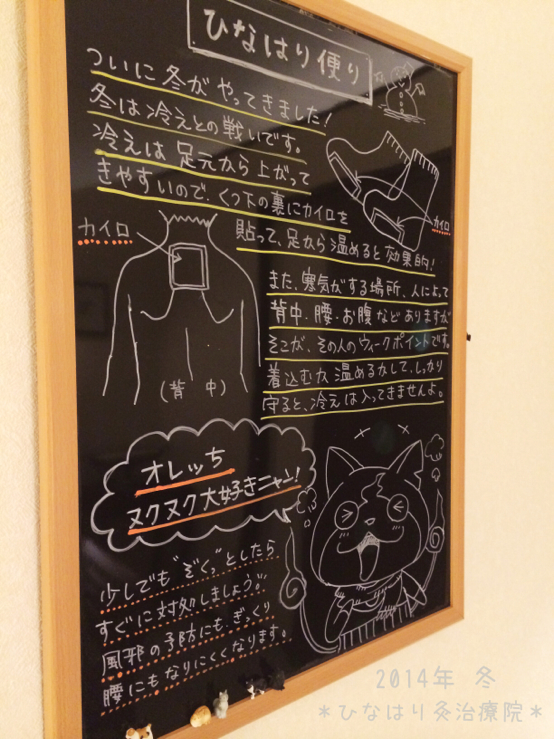 ひなはり便り
ついに冬がやってきました!
冬は冷えとの戦いです。
冷えは足元から上がって
きやすいので、くつ下の裏にカイロを
貼って、足から温めると効果的!
カイロ
カイロ
(背中)
また、寒気がする場所、人によって
背中・腰・お腹などありますが
そこが、その人のウィークポイントです。
着込むなり温めるなりして、しっかり
守ると、冷えは入ってきませんよ。
オレっち
ヌクヌク大好きニャン!
少しでも"ぞくっ"としたら
すぐに対処しましょう。
風邪の予防にも、ぎっくり
腰にもなりにくくなります。
2014年 冬
*ひなはり灸治療院*